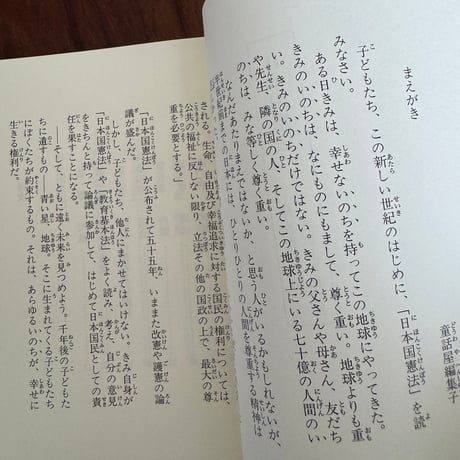 まえがき
童話屋編集子
子どもたち、この新しい世紀のはじめに、「日本国憲法」を読
みなさい。
ある日きみは、幸せないのちを持ってこの地球にやってきた。
きみのいのちは、なにものにもまして、尊く重い。地球よりも重
い。きみのいのちだけではない。きみの父さんや母さん、友だち
や先生、隣の国の人、そしてこの地球上にいる七十億の人間のい
のちは、みな等しく尊く重い。
なんだあたりまえではないか、と思う人がいるかもしれないが、
の日本には、ひとりひとりの人間を尊重する精神は
される。生命、自由及び幸福追求に対する国民の権利については、
公共の福祉に反しない限り、立法その他の国政の上で、最大の尊
重を必要とする。」
「日本国憲法」が公布されて五十五年、いままた改憲や護憲の論
議が盛んだ。
しかし、子どもたち、他人にまかせてはいけない。きみ自身が
「日本国憲法」や「教育基本法」をよく読み、考え、自分の意見
をきちんと持って論議に参加して、はじめて日本国民としての責
任を果すことになる。
――そして、ともに遠い未来を見つめよう。千年後の子どもた
ちに遺すもの――青い星、地球。そこに生まれてくる子どもたち
にぼくたちが約束するもの。それは、あらゆるいのちが、幸せに
生きる権利だ。